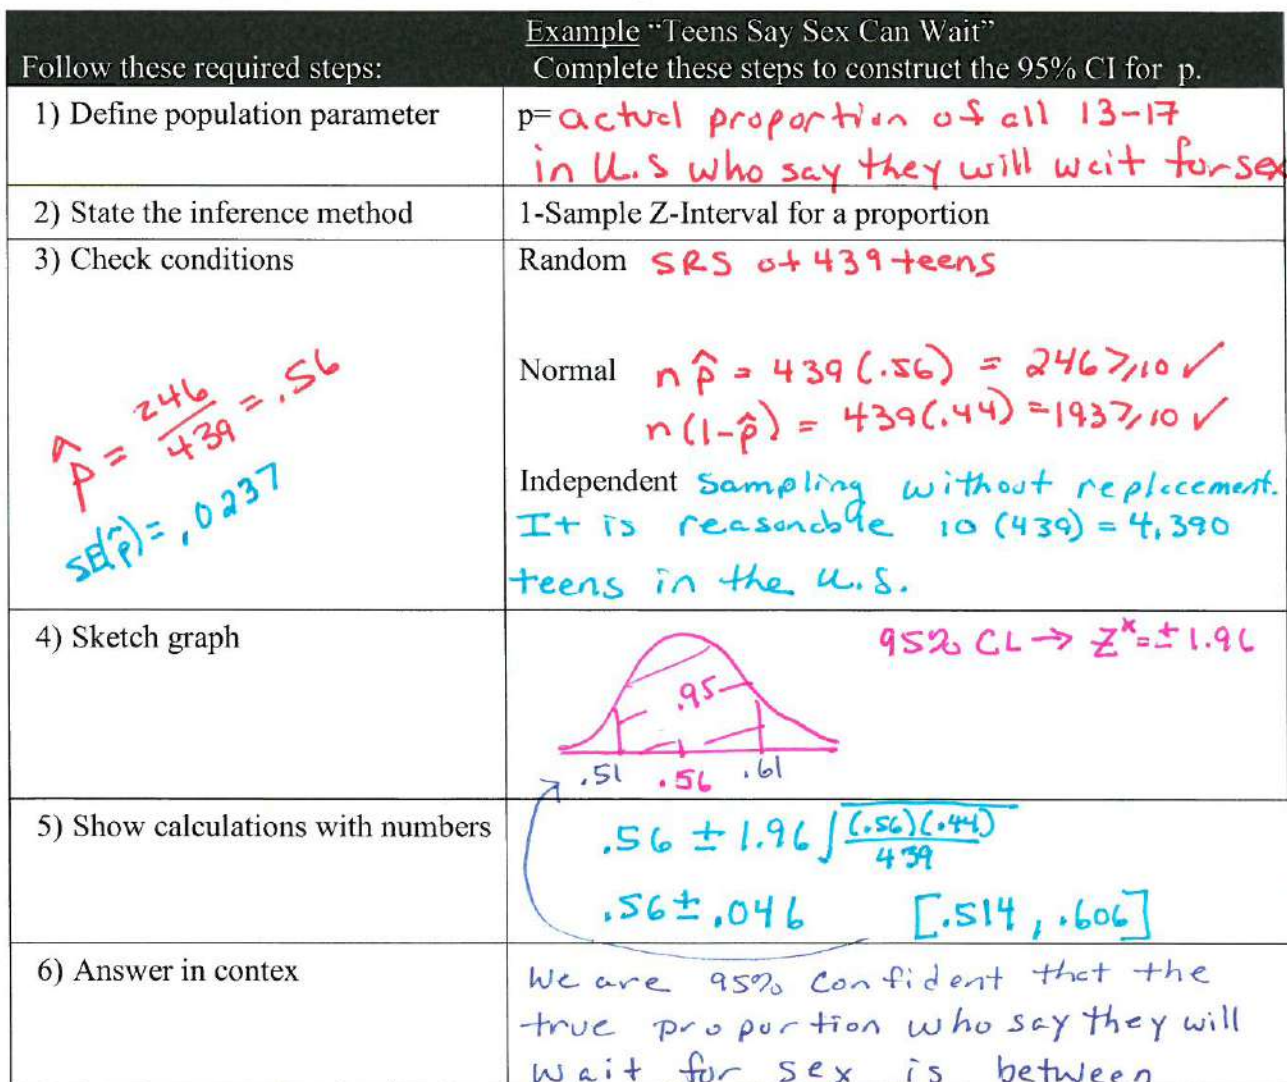 Example “Teens Say Sex Can Wait”
Follow these required steps:
Complete these steps to construct the 95% CI for p.
1) Define population parameter
p= actual proportion of all 13-17
in U.S who say they will wait for sex
2) State the inference method
1-Sample Z-Interval for a proportion
3) Check conditions
Random SRS of 439 teens
p̂ = 246/439 = .56
SE(p̂) = .0237
Normal n p̂ = 439 (.56) = 246 ≥ 10 ✓
n(1-p̂) = 439(.44) = 193 ≥ 10 ✓
Independent Sampling without replacement.
It is reasonable 10 (439) = 4,390
teens in the U.S.
4) Sketch graph
95% CL → Z*= ± 1.96
.95
.51 .56 .61
5) Show calculations with numbers
.56 ± 1.96 √(.56)(.44)/439
.56 ± .046 [.514, .606]
6) Answer in contex
We are 95% confident that the
true proportion who say they will
wait for sex is between